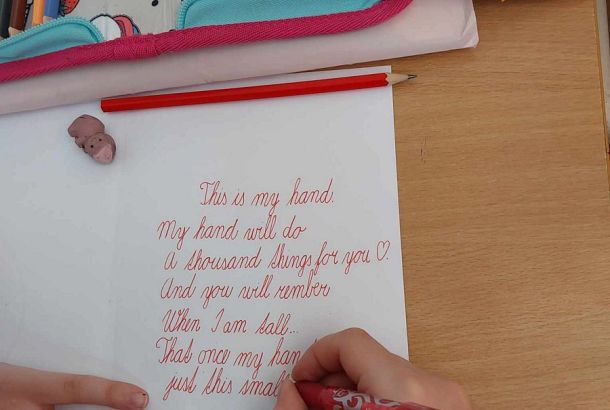 This is my hand.
My hand will do
a thousand things for you ♡.
And you will rember
When I am tall...
That once my hand
just this small